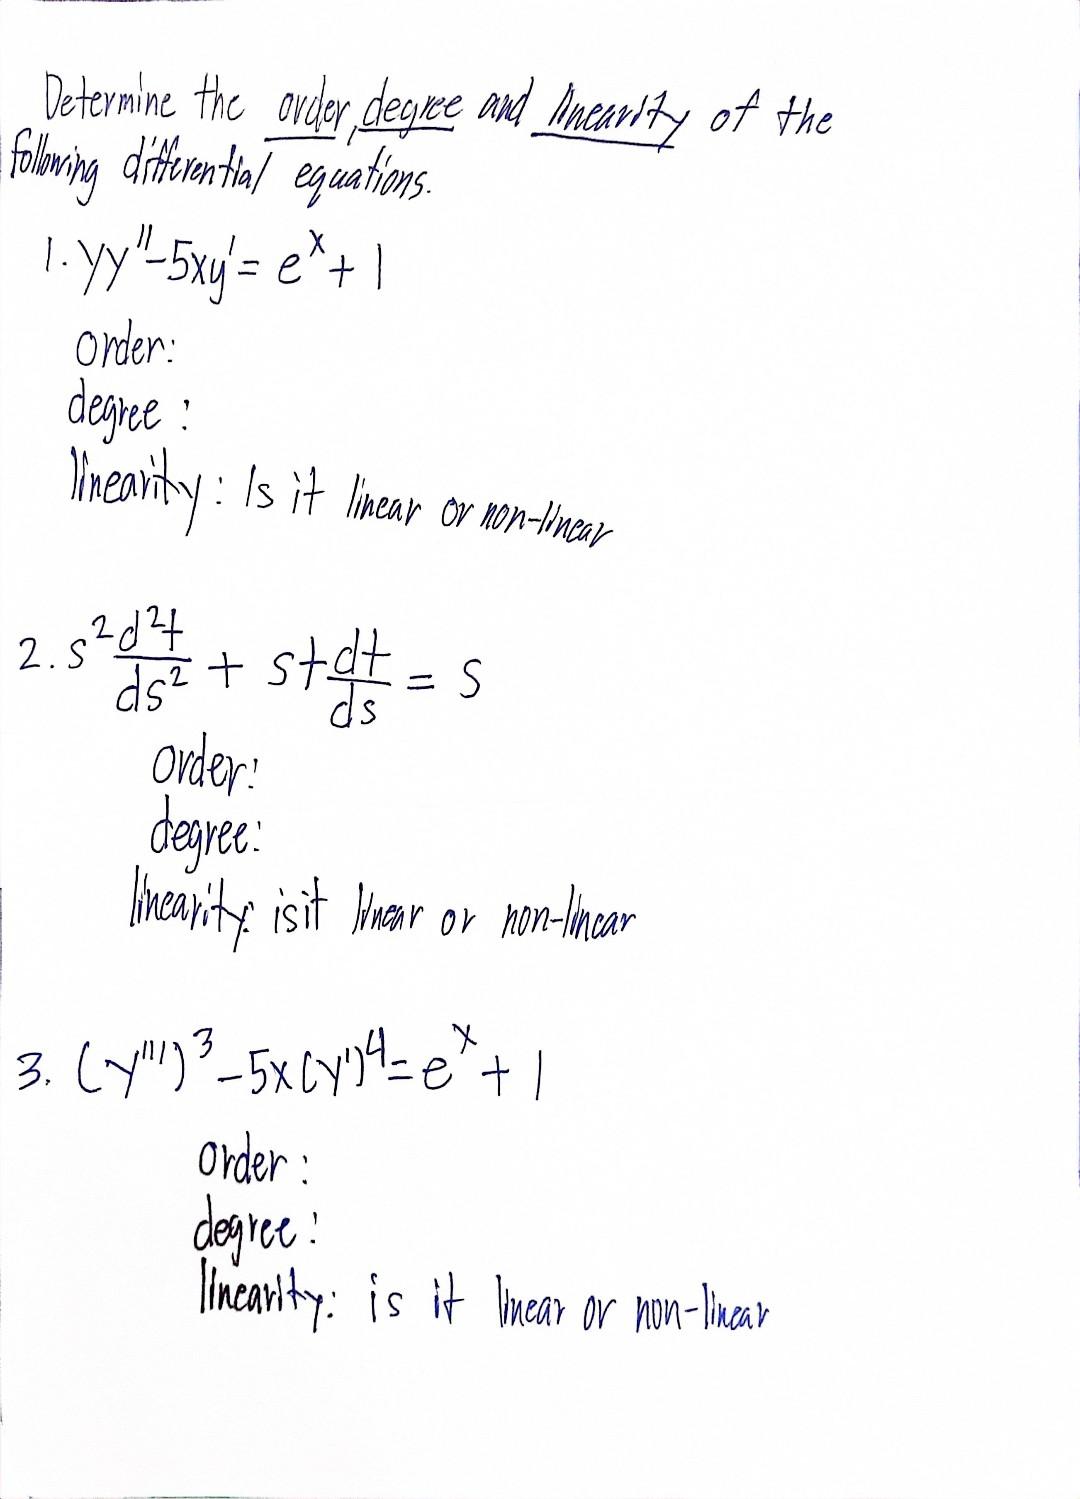 Determine the order, degree and linearity of the
following differential equations.
1. yy" - 5xy' = e^x + 1
order:
degree :
linearity : Is it linear or non-linear
2. s² d²t/ds² + st dt/ds = s
order:
degree:
linearity: is it linear or non-linear
3. (y''')³ - 5x(y')⁴ = e^x + 1
order :
degree :
linearity: is it linear or non-linear